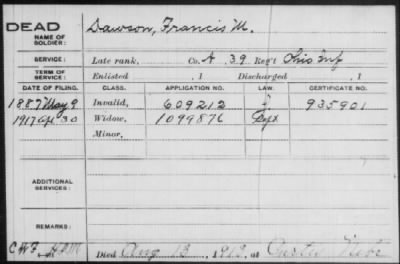 DEAD
NAME OF SOLDIER: Dawson, Francis M.
SERVICE: Late rank, Co. A 39 Reg't Ohio Inf
TERM OF SERVICE: Enlisted , 1 Discharged , 1
DATE OF FILING. CLASS. APPLICATION NO. LAW. CERTIFICATE NO.
1887 May 9 Invalid, 609212 935901
1917 Apr 30 Widow, 1099876
Minor,
ADDITIONAL SERVICES:
REMARKS:
Died Aug 13, 1912, at Custer Nebr